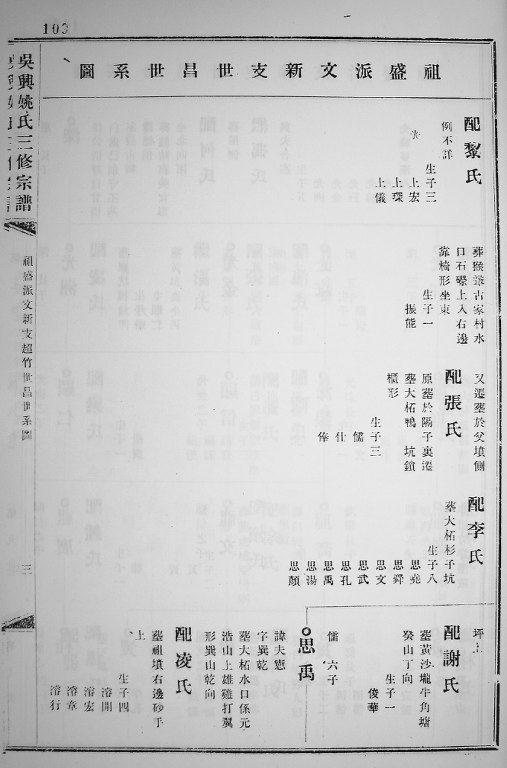 103
祖盛派文新支世昌世系圖
吳興姚氏三修宗譜
祖盛派文新支超竹世昌世系圖
三
配黎氏
例不詳
生子三
上宏
上環
上儀
葬猴聳古家村水
口石礐上入右邊
靠椅形坐東
生子一
振能
又遷塟於父墳側
配張氏
原塟於陽子裏遷
塟大柘鴨坑鎖
櫃形
生子三
儒
仕
俸
配李氏
塟大柘杉子坑
生子八
思堯
思舜
思文
思武
思孔
思禹
思湯
思顏
坪上
配謝氏
塟黃沙壠牛角塘
癸山丁向
生子一
俊華
儒六子
思禹
諱夫憲
字巽乾
塟大柘水口係元
浩山上雄雞打翼
形巽山乾向
配凌氏
塟祖墳右邊砂手
上
生子四
溶開
溶宏
溶章
溶行